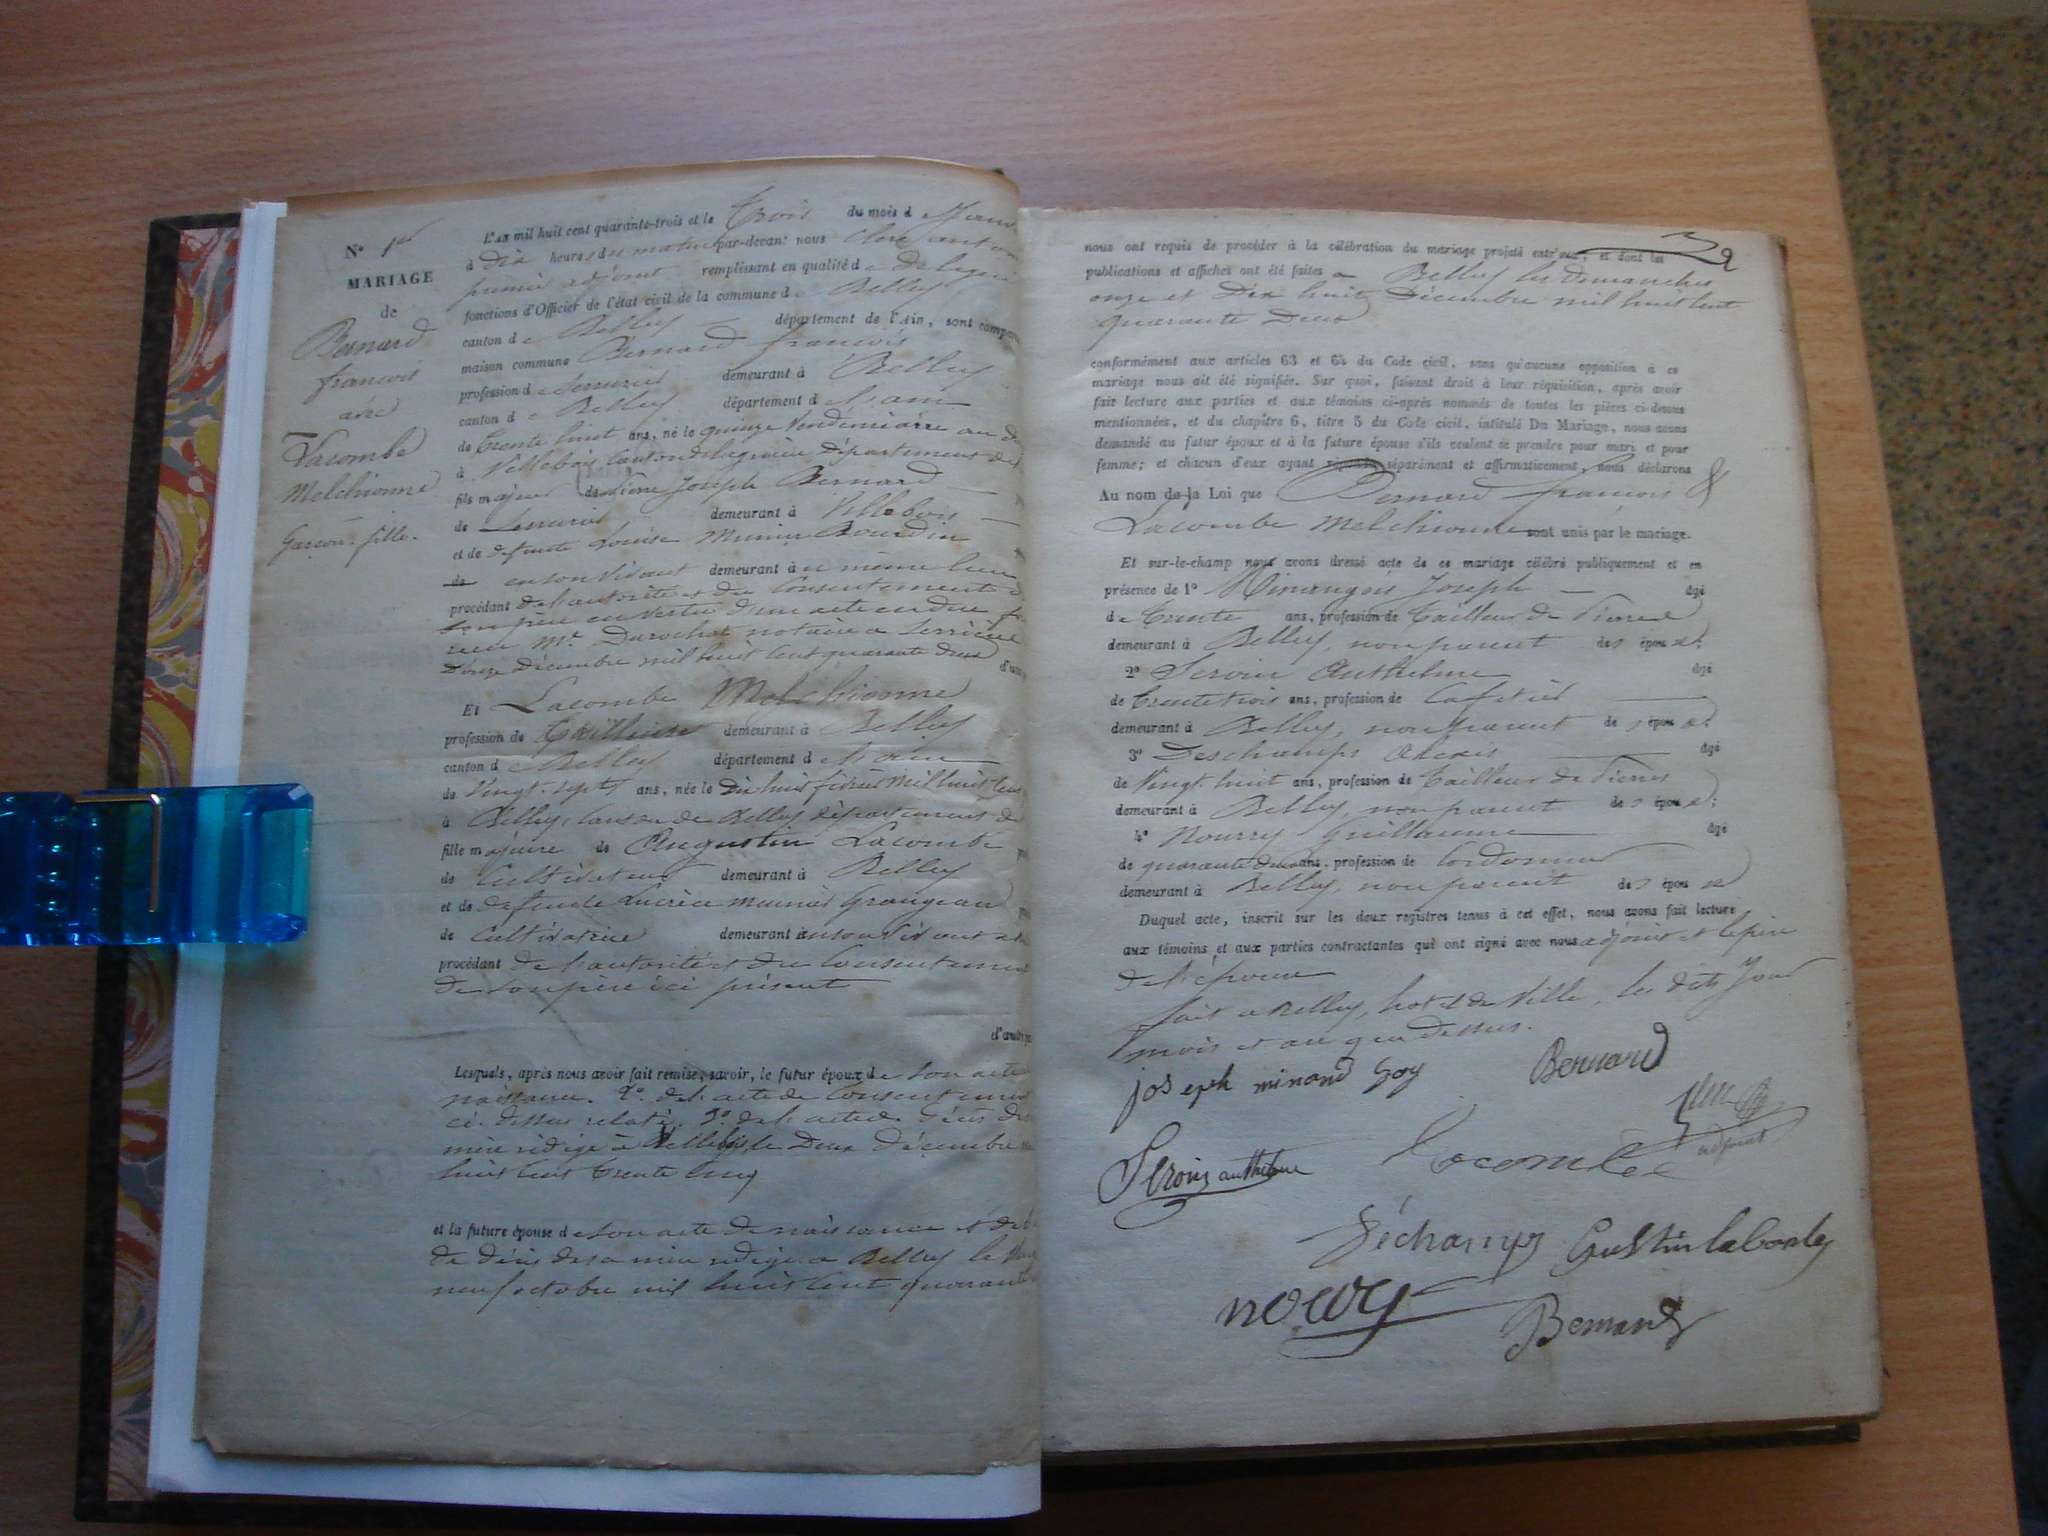 N° 1er
MARIAGE
de
Bernard
françois
avec
Lacombe
Melchionne
Garçon - fille.
L'AN mil huit cent quarante-trois et le Trois du mois d
à Dix heures du matin par-devant nous
premier adjoint remplissant en qualité d
fonctions d'Officier de l'état civil de la commune de Belley
canton de Belley département de l'Ain, sont
maison commune Bernard françois
profession de Serrurier demeurant à Belley
canton de Belley département de l'ain
de trente huit ans, né le quinze Vendémiaire an
à Villebois, canton de lagnieu Département de
fils majeur de Pierre Joseph Bernard
de Serrurier demeurant à Villebois
et de défunte Louise Bourdin
de en son vivant demeurant à u même lieu
procédant de l'autorité et du Consentement
son père en vertu d'un acte en due
recu Me Durochat notaire a Serrières
Douze décembre mil huit cent quarante deux
d'une
Et Lacombe Melchionne
profession de Tailleuse demeurant à Belley
canton de Belley département de l'ain
de Vingt-sept ans, née le Dix huit fevrier Mil huit Cent
à Belley, canton de Belley département de
fille majeure de Augustin Lacombe
de Cultivateur demeurant à Belley
et de défunte Lucrèce Grangean
de Cultivatrice demeurant en son vivant
procédant de l'autorité et du Consentement
de son père ici présent
Lesquels, après nous avoir fait remise, savoir, le futur époux de son acte
naissance. 2° de l'acte de Consentement
ci-dessus relaté. 3° de l'acte de Décès de
mère rédigé à le Deux décembre
huit cent trente cinq
et la future épouse de son acte de naissance et de
de décès de sa mère rédigé a Belley le
neuf octobre mil huit cent quarante
nous ont requis de procéder à la célébration du mariage projeté entr'eux, et dont les
publications et affiches ont été faites a Belley les dimanches
onze et Dix huit Décembre mil huit Cent
quarante Deux
conformément aux articles 63 et 64 du Code civil, sans qu'aucune opposition à ce
mariage nous ait été signifiée. Sur quoi, faisant droit à leur réquisition, après avoir
fait lecture aux parties et aux témoins ci-après nommés de toutes les pièces ci-dessus
mentionnées, et du chapitre 6, titre 5 du Code civil, intitulé Du Mariage, nous avons
demandé au futur époux et à la future épouse s'ils veulent se prendre pour mari et pour
femme; et chacun d'eux ayant répondu séparément et affirmativement, nous déclarons
Au nom de la Loi que Bernard françois &
Lacombe Melchionne sont unis par le mariage.
Et sur-le-champ nous avons dressé acte de ce mariage célébré publiquement et en
présence de 1° Joseph âgé
de trente ans, profession de Tailleur de Pierres
demeurant à Belley, non parent des époux;
2° Seroin Anthelme âgé
de trente trois ans, profession de Cafetier
demeurant à Belley, non parent des époux;
3° Deschamps Alexis âgé
de Vingt-huit ans, profession de Tailleur de Pierres
demeurant à Belley, non parent des époux;
4° Nourry Guillaume âgé
de quarante deux ans, profession de Cordonnier
demeurant à Belley, non parent des époux
Duquel acte, inscrit sur les deux registres tenus à cet effet, nous avons fait lecture
aux témoins et aux parties contractantes qui ont signé avec nous adjoint et le père
de l'épouse
fait a Belley, hotel de Ville, les dits Jour
mois et an que dessus.
joseph minand Goy Bernard
adjoint
Seroin anthelme Lacombe
Déchamps
nourry Bernard